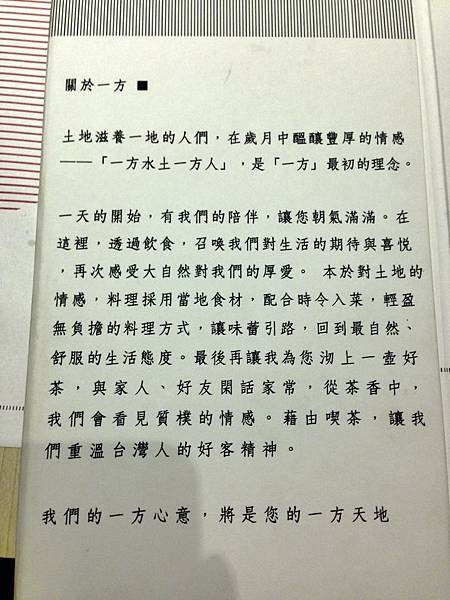 關於一方 ■
土地滋養一地的人們，在歲月中醞釀豐厚的情感
——「一方水土一方人」，是「一方」最初的理念。
一天的開始，有我們的陪伴，讓您朝氣滿滿。在
這裡，透過飲食，召喚我們對生活的期待與喜悅
，再次感受大自然對我們的厚愛。 本於對土地的
情感，料理採用當地食材，配合時令入菜，輕盈
無負擔的料理方式，讓味蕾引路，回到最自然、
舒服的生活態度。最後再讓我為您沏上一壺好
茶，與家人、好友閑話家常，從茶香中，
我們會看見質樸的情感。藉由喫茶，讓我
們重溫台灣人的好客精神。
我們的一方心意，將是您的一方天地